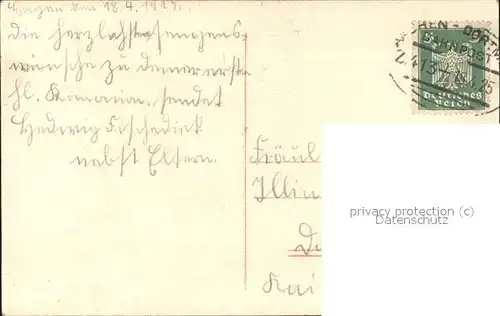 Hagen den 18.4.1925.
die herzlichsten Segens-
wünsche zu deiner ersten
hl. Komunion, sendet
Hedwig Fischedick
nebst Eltern.
HEN - DORTM
BAHNPOST
5
Deutsches
Reich
Fräul
Illin
D
Kai
privacy protection (c)
Datenschutz (c)